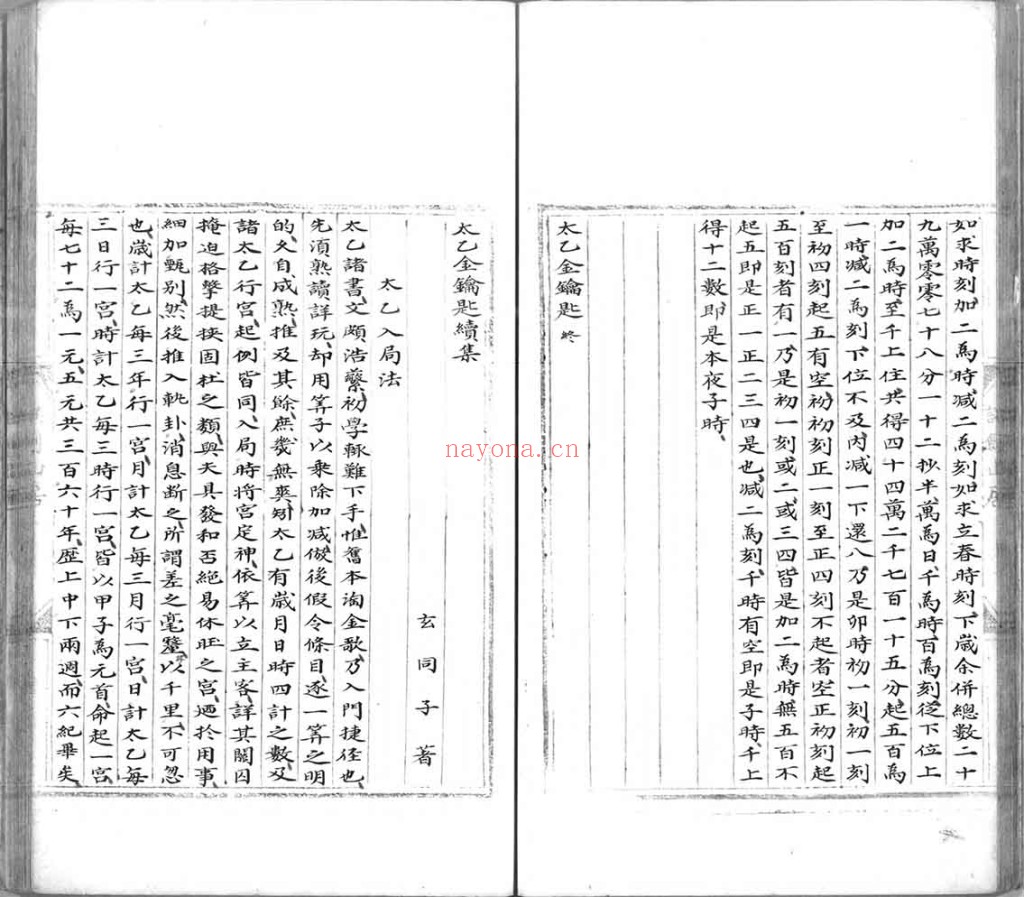 如求時刻加二為時減二為刻如求立春時刻下歲余併總數二十
九萬零零七十八分一十二抄半萬為日千為時百為刻從下位上
加二為時至千上住共得四十四萬二千七百一十五分起五百為
一時減二為刻下位不及內減一下還八乃是卯時初一刻初一刻
至初四刻起五有空初初刻正一刻至正四刻不起者空正初刻起
五百刻者有一乃是初一刻或二或三四皆是加二為時無五百不
起五即是正一正二三四是也減二為刻千時有空即是子時千上
得十二數即是本夜子時
太乙金鑰匙 終
太乙金鑰匙續集
玄同子著
太乙入局法
太乙諸書文頗浩蘩初學輙難下手惟舊本淘金歌乃入門捷徑也
先須熟讀詳玩却用筭子以乘除加減倣後假令條目逐一筭之明
的久自成熟推及其餘庶幾無爽矧太乙有歲月日時四計之數及
諸太乙行宮起例皆同入局時將宮定神依筭以立主客詳其關囚
掩迫格擊提挾固杜之類與天具發和否絕易休旺之宮廼於用事
細加甄别然後推入軌卦消息斷之所謂差之毫釐以千里不可忽
也歲計太乙每三年行一宮月計太乙每三月行一宮日計太乙每
三日行一宮時計太乙每三時行一宮皆以甲子為元首命起一宮
每七十二為一元五元共三百六十年歴上中下兩週而六紀畢矣
nayona.cn